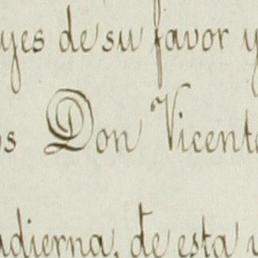 yes de su favor y
os Don Vicente
adierna, de esta y